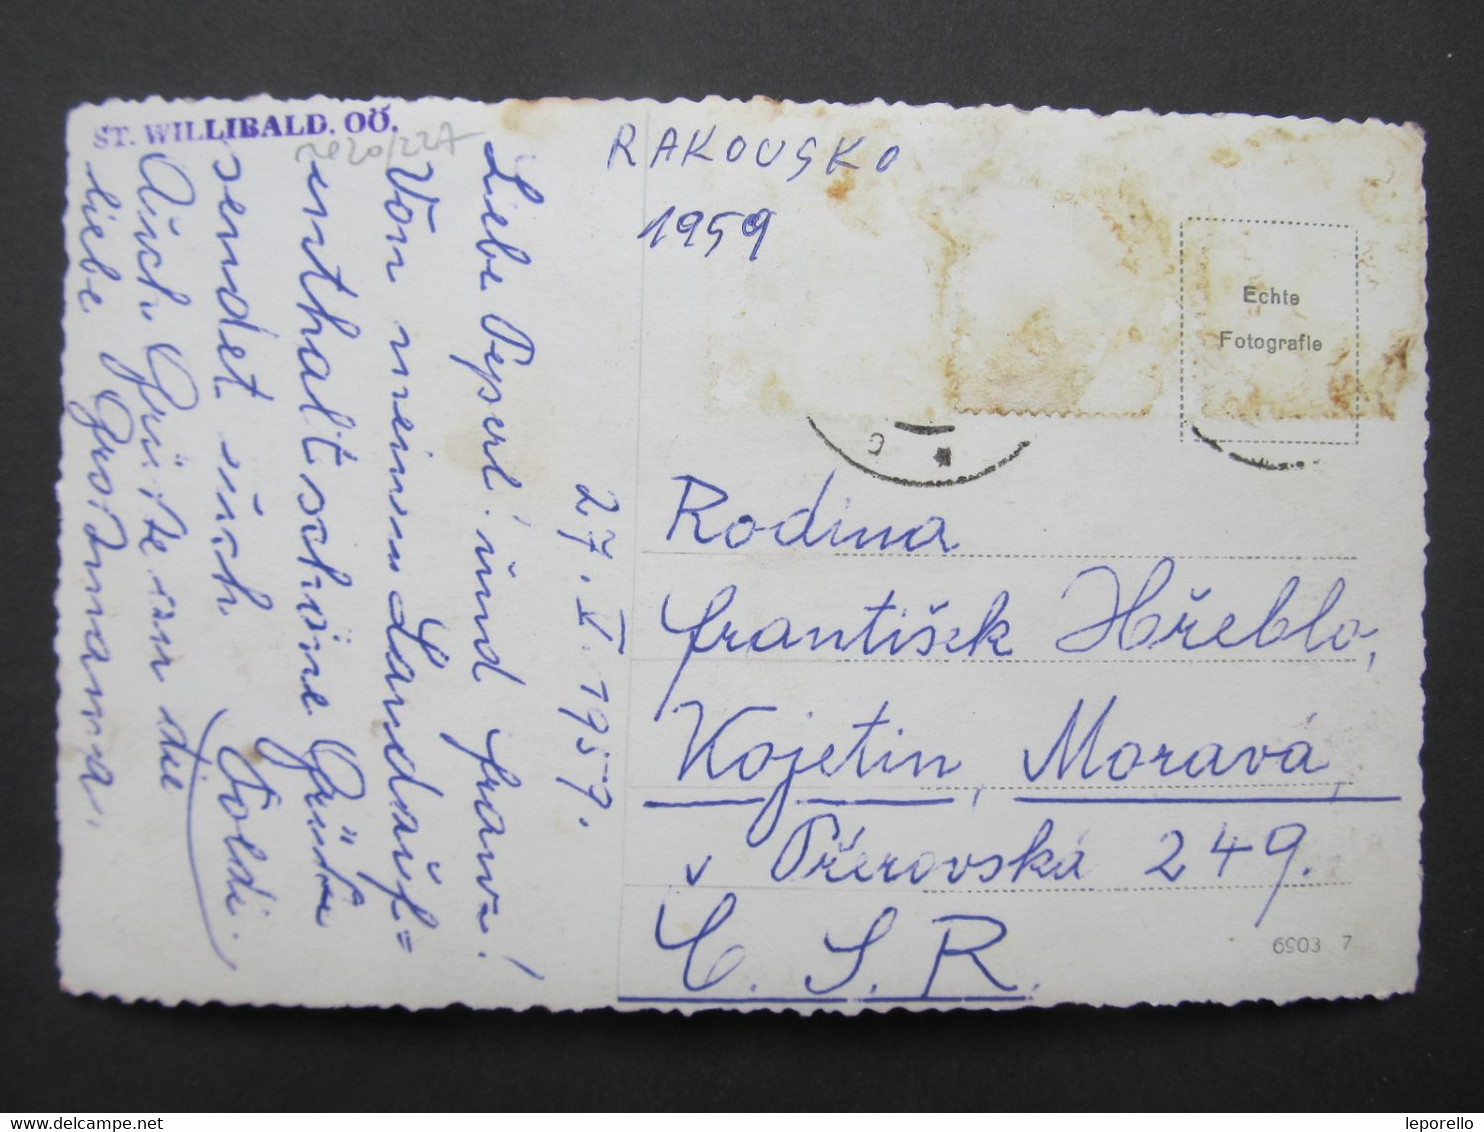 ST. WILLIBALD. OÖ.
27. V. 1959.
Liebe Peperl und Franz!
Von meinem Landauf=
enthalt schöne Grüße
sendet euch Poldi.
Auch Grüße an die
liebe Großmama.
RAKOUSKO
1959
Echte
Fotografie
Rodina
František Hřeblo,
Kojetin, Morava,
Přerovská 249.
Č. S. R.
6903 7
leporello